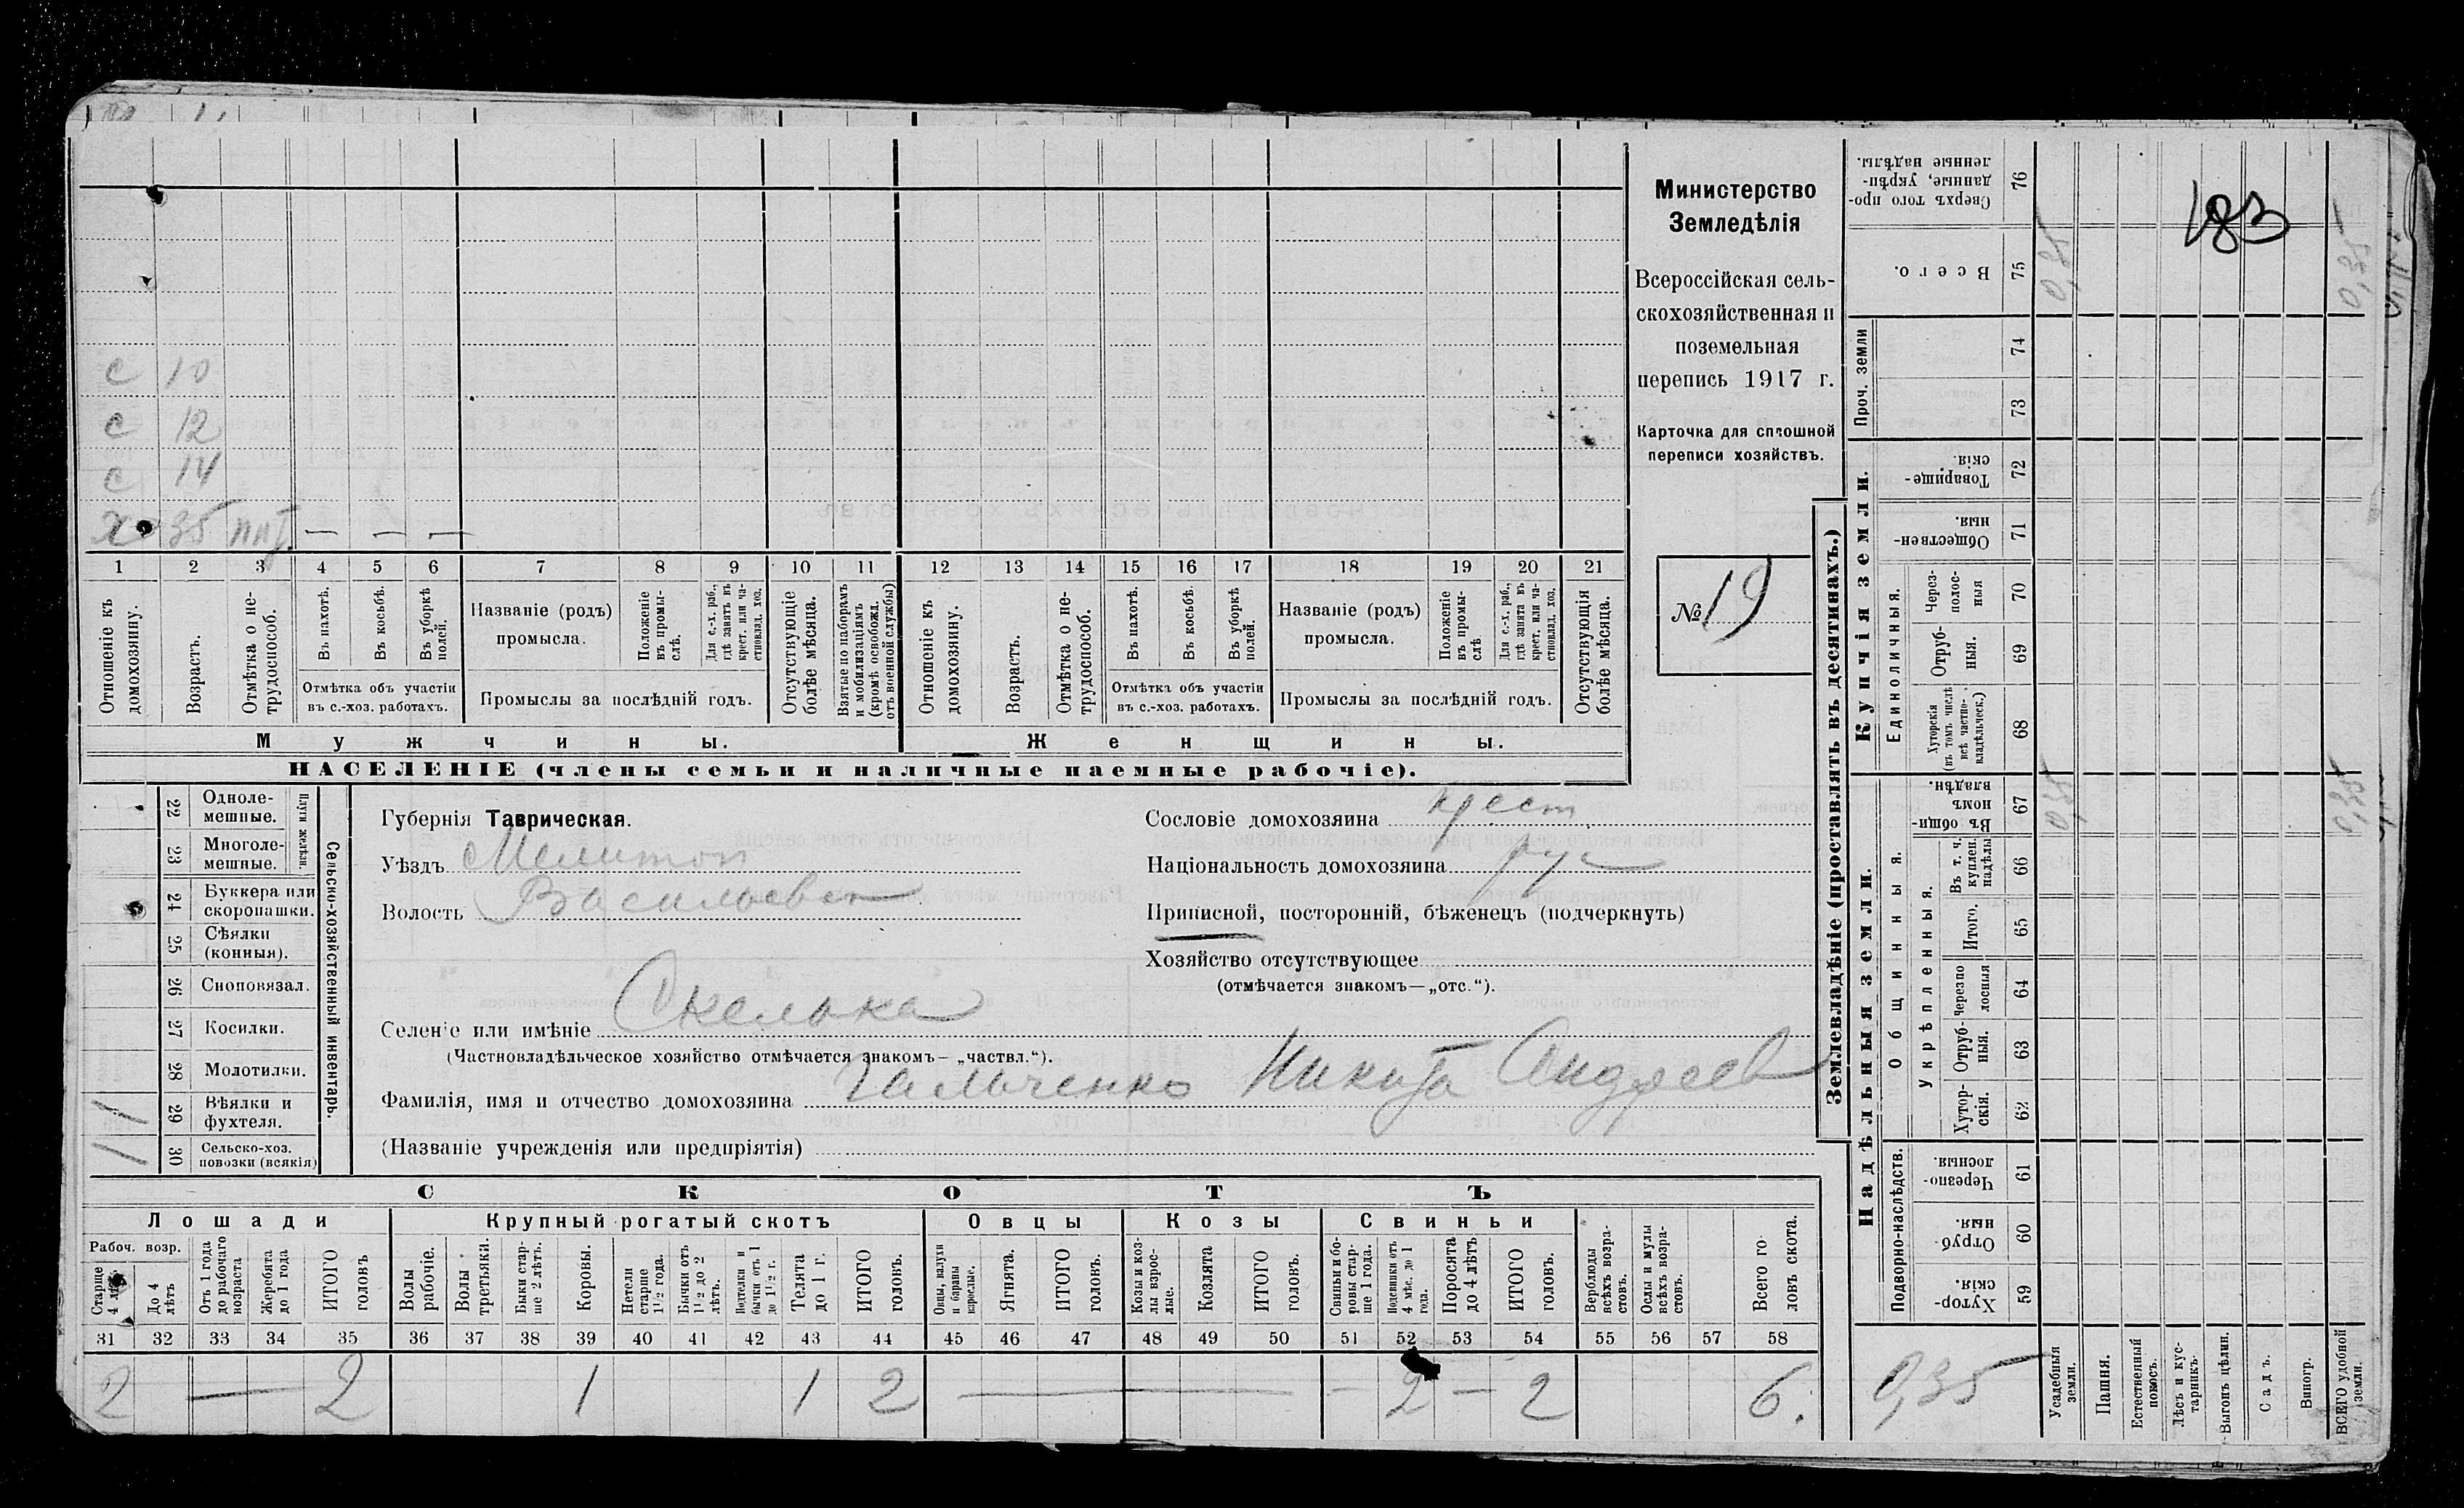 183
с 10
с 12
с 14
х 35
1 2 3 4 5 6 7 8 9 10 11 12 13 14 15 16 17 18 19 20 21
Отношеніе къ домохозяину.
Возрастъ.
Отмѣтка о не-трудоспособ.
Въ пахотѣ.
Въ косьбѣ.
Въ уборкѣ полей.
Отмѣтка объ участіи въ с.-хоз. работахъ.
Названіе (родъ) промысла.
Положеніе въ промы-слѣ.
Для с.-х. раб., гдѣ занятъ въ крест. или ча-стновлад. хоз.
Промыслы за послѣдній годъ.
Отсутствующіе болѣе мѣсяца.
Взятые по наборамъ и мобилизаціямъ (кромѣ освобожд. отъ военной службы)
Отношеніе къ домохозяину.
Возрастъ.
Отмѣтка о не-трудоспособ.
Въ пахотѣ.
Въ косьбѣ.
Въ уборкѣ полей.
Отмѣтка объ участіи въ с.-хоз. работахъ.
Названіе (родъ) промысла.
Положеніе въ промы-слѣ
Для с.-х. раб., гдѣ занята въ крест. или ча-стновлад. хоз.
Промыслы за послѣдній годъ.
Отсутствующія болѣе мѣсяца.
Мужчины.
Женщины.
НАСЕЛЕНІЕ (члены семьи и наличные наемные рабочіе).
Министерство
Земледѣлія
Всероссійская сель-
скохозяйственная и
поземельная
перепись 1917 г.
Карточка для сплошной
переписи хозяйствъ.
№ 19
22 Одноле-мешные.
23 Многоле-мешные.
Плуги желѣзн.
24 Буккера или скоропашки.
25 Сѣялки (конныя).
26 Сноповязал.
27 Косилки.
28 Молотилки.
29 Вѣялки и фухтеля.
1
30 Сельско-хоз. повозки (всякія)
1
Сельско-хозяйственный инвентарь.
Губернія Таврическая.
Уѣздъ Мелитоп
Волость Васильевск
Селеніе или имѣніе Скелька
(Частновладѣльческое хозяйство отмѣчается знакомъ— „частвл.“).
Фамилія, имя и отчество домохозяина Гальченко Никита Андреев
(Названіе учрежденія или предпріятія)
Сословіе домохозяина крест
Національность домохозяина рус
Приписной, посторонній, бѣженецъ (подчеркнуть)
Хозяйство отсутствующее
(отмѣчается знакомъ—„отс.“).
СКОТЪ
Лошади
Крупный рогатый скотъ
Овцы
Козы
Свиньи
Рабоч. возр.
Старше 4 лѣтъ
До 4 лѣтъ
Отъ 1 года до рабочаго возраста
Жеребята до 1 года
ИТОГО головъ
Волы рабочіе.
Волы третьяки.
Быки стар-ше 2 лѣтъ.
Коровы.
Нетели старше 1½ года.
Бычки отъ 1½ до 2 лѣтъ.
Подтелки и бычки отъ 1 до 1½ г.
Телята до 1 г.
ИТОГО головъ.
Овцы, валухи и бараны взрослые.
Ягнята.
ИТОГО головъ.
Козы и коз-лы взрос-лые.
Козлята
ИТОГО головъ.
Свиньи и бо-ровы стар-ше 1 года.
Подсвинки отъ 4 мѣс. до 1 года.
Поросята до 4 лѣтъ
ИТОГО головъ.
Верблюды всѣхъ возра-стовъ.
Ослы и мулы всѣхъ возра-стовъ.
Всего го-ловъ скота.
31 32 33 34 35 36 37 38 39 40 41 42 43 44 45 46 47 48 49 50 51 52 53 54 55 56 57 58
2 — 2 1 1 2 — — 2 — 2 6.
Землевладѣніе (проставлять въ десятинахъ.)
Надѣльныя земли.
Купчія земли.
Проч. земли
Подворно-наслѣдств.
Общинныя.
Укрѣпленныя.
Единоличныя.
Сверхъ того про-данные, укрѣп-ленные надѣлы.
76
Всего.
75
0,35
0,35
74
73
Товарище-скія.
72
Обществен-ныя
71
Через-полос-ныя
70
Отруб-ныя.
69
Хуторскія (въ томъ числѣ всѣ частно-владѣльческ.)
68
Въ общи-номъ владѣн.
67
0,35
0,35
Въ т. ч. куплен. надѣлы
66
Итого.
65
Черезпо лосныя
64
Отруб-ныя.
63
Хутор-скія.
62
Черезпо-лосныя.
61
Отруб-ныя.
60
Хутор-скія.
59
0,35
Усадебныя земли.
Пашня.
Естественный покосъ.
Лѣсъ и кус-тарникъ.
Выгонъ цѣлин.
Садъ.
Виногр.
ВСЕГО удобной земли.